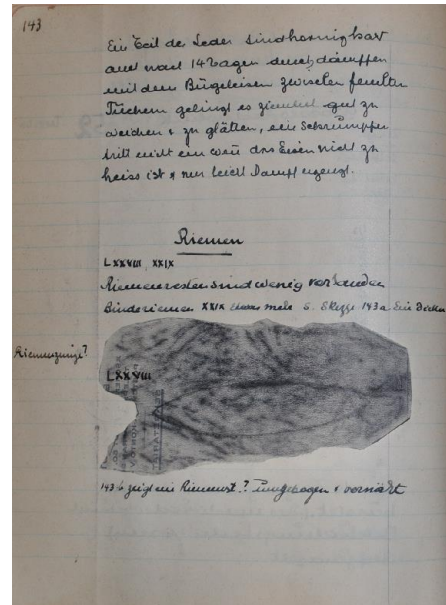 143
Ein Teil der Leder sind hornig hart
und nach 14 Tagen durch dämpfen
mit dem Bügeleisen zwischen feuchten
Tüchern gelingt es ziemlich gut zu
weichen & zu glätten, ein Schrumpfen
tritt nicht ein wenn das Eisen nicht zu
heiss ist & nur leicht Dampf erzeugt.
Riemen
LXXVIII, XXIX
Riemenresten sind wenig vorhanden
Binderiemen XXIX etwas mehr s. Skizze 143a Ein dicker
Riemenzunge?
LXXVIII
143b zeigt ein Riemenst.? umgebogen & vernäht